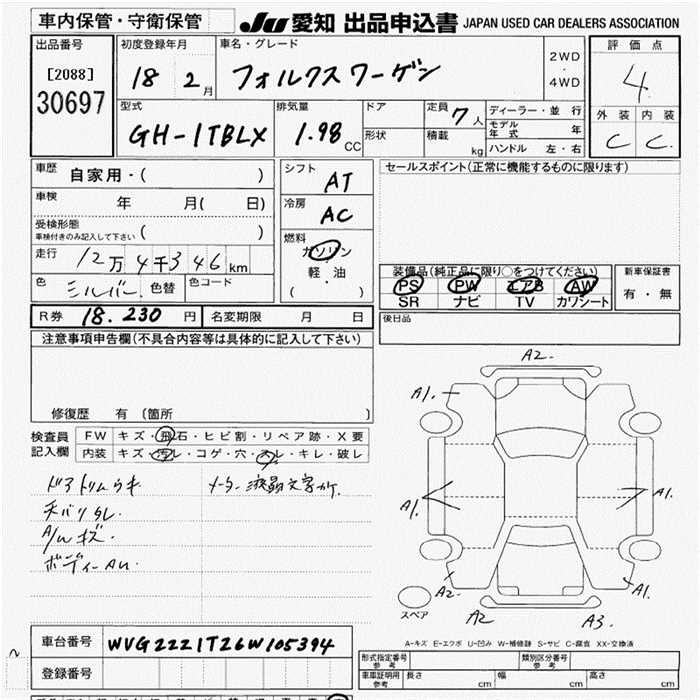 車内保管・守衛保管
JU 愛知 出品申込書 JAPAN USED CAR DEALERS ASSOCIATION
出品番号 初度登録年月 車名・グレード 2WD・4WD 評価点
[2088]
30697
18 2月 フォルクスワーゲン 4
型式 排気量 ドア 定員 7人 ディーラー・並行 外装 内装
GH-1TBLX 1.98CC 形状 積載 kg モデル年式 年 C C
ハンドル 左・右
車歴 自家用・( ) シフト AT セールスポイント(正常に機能するものに限ります)
車検 年 月( 日) 冷房 AC
受検形態 車検付きのみ記入して下さい ( ) 燃料 ガソリン
走行 12万4千346km 軽・油 装備品(純正品に限り○をつけてください) 新車保証書
色 シルバー 色替 色コード ( ) PS PW エアB AW 有・無
SR ナビ TV カワシート
R券 18.230円 名変期限 月 日 後日品
注意事項申告欄(不具合内容等は具体的に記入して下さい)
修復歴 有 〔箇所 〕
検査員記入欄 FW キズ・飛石・ヒビ割・リペア跡・X要
内装 キズ・汚レ・コゲ・穴・スレ・キレ・破レ
ドアトリムウキ メーター液晶文字カケ
天バリタレ
A/Wキズ
ボディーAU
A2.
A1. A1.
A1. A1.
A2. A1.
A2 A3.
スペア
A-キズ E-エクボ U-凹み W-補修跡 S-サビ C-腐食 XX-交換済
車台番号 WVG2221T26W105394
形式指定番号 参考 類別区分番号 参考
登録番号 車庫証明用 参考 長さ cm 幅 cm 高さ cm